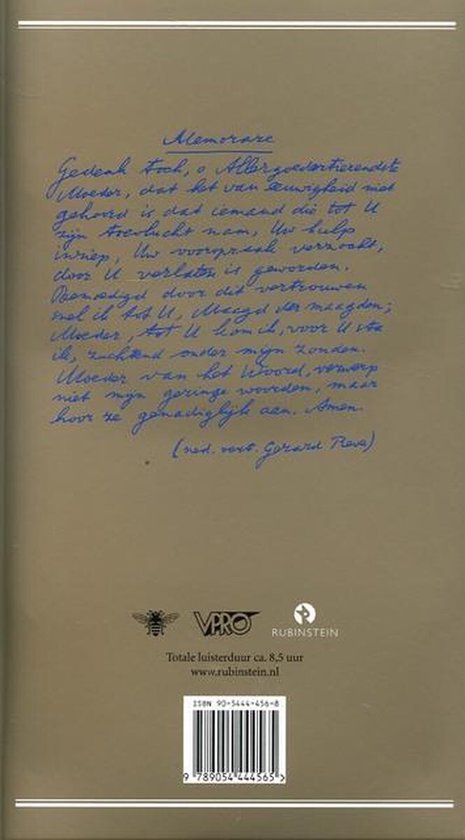 Memorare
Gedenk toch, o Allergoedertierendste
Moeder, dat het van eeuwigheid niet
gehoord is, dat iemand die tot U
zijn toevlucht nam, Uw hulp
inriep, Uw voorspraak verzocht,
door U verlaten is geworden.
Bemoedigd door dit vertrouwen
snel ik tot U, Maagd der maagden;
Moeder, tot U kom ik, voor U sta
ik, zuchtend onder mijn zonden.
Moeder van het Woord, verwerp
niet mijn geringe woorden, maar
hoor ze genadiglijk aan. Amen.
(ned. vert. Gerard Reve)
VPRO
RUBINSTEIN
Totale luisterduur ca. 8,5 uur
www.rubinstein.nl
ISBN 90-5444-456-8
9 789054 444565 >